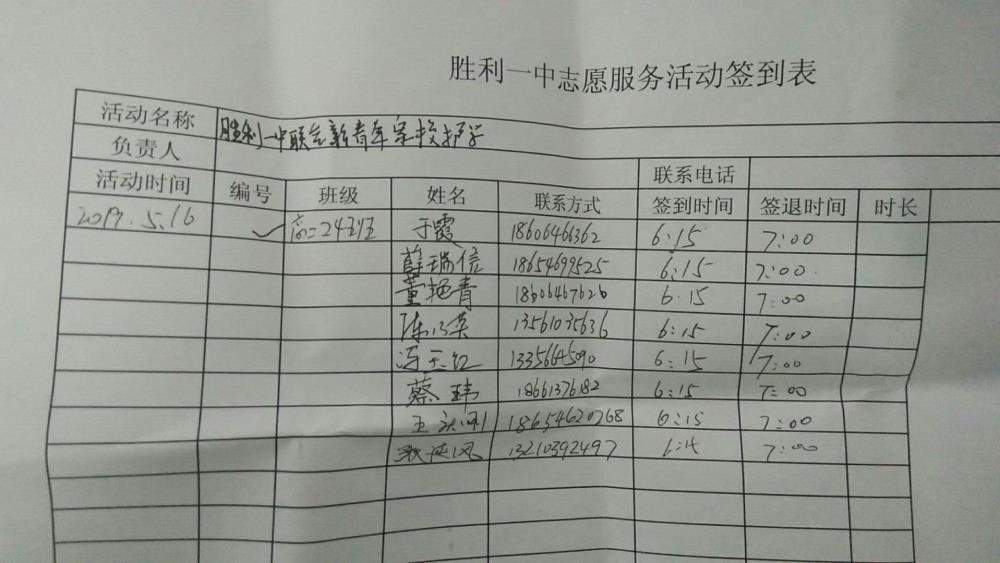 胜利一中志愿服务活动签到表
活动名称 胜利一中联合新青年家校护学
负责人 联系电话
活动时间 编号 班级 姓名 联系方式 签到时间 签退时间 时长
2019.5.16 ✓ 高二24班 于霞 18606466362 6:15 7:00
薛瑞信 18654699525 6:15 7:00
董艳青 18606467626 6:15 7:00
陈 英 13561035636 6:15 7:00
冯玉红 13356645090 6:15 7:00
蔡玮 18661376182 6:15 7:00
王 18654620768 6:15 7:00
13210392497 6:15 7:00